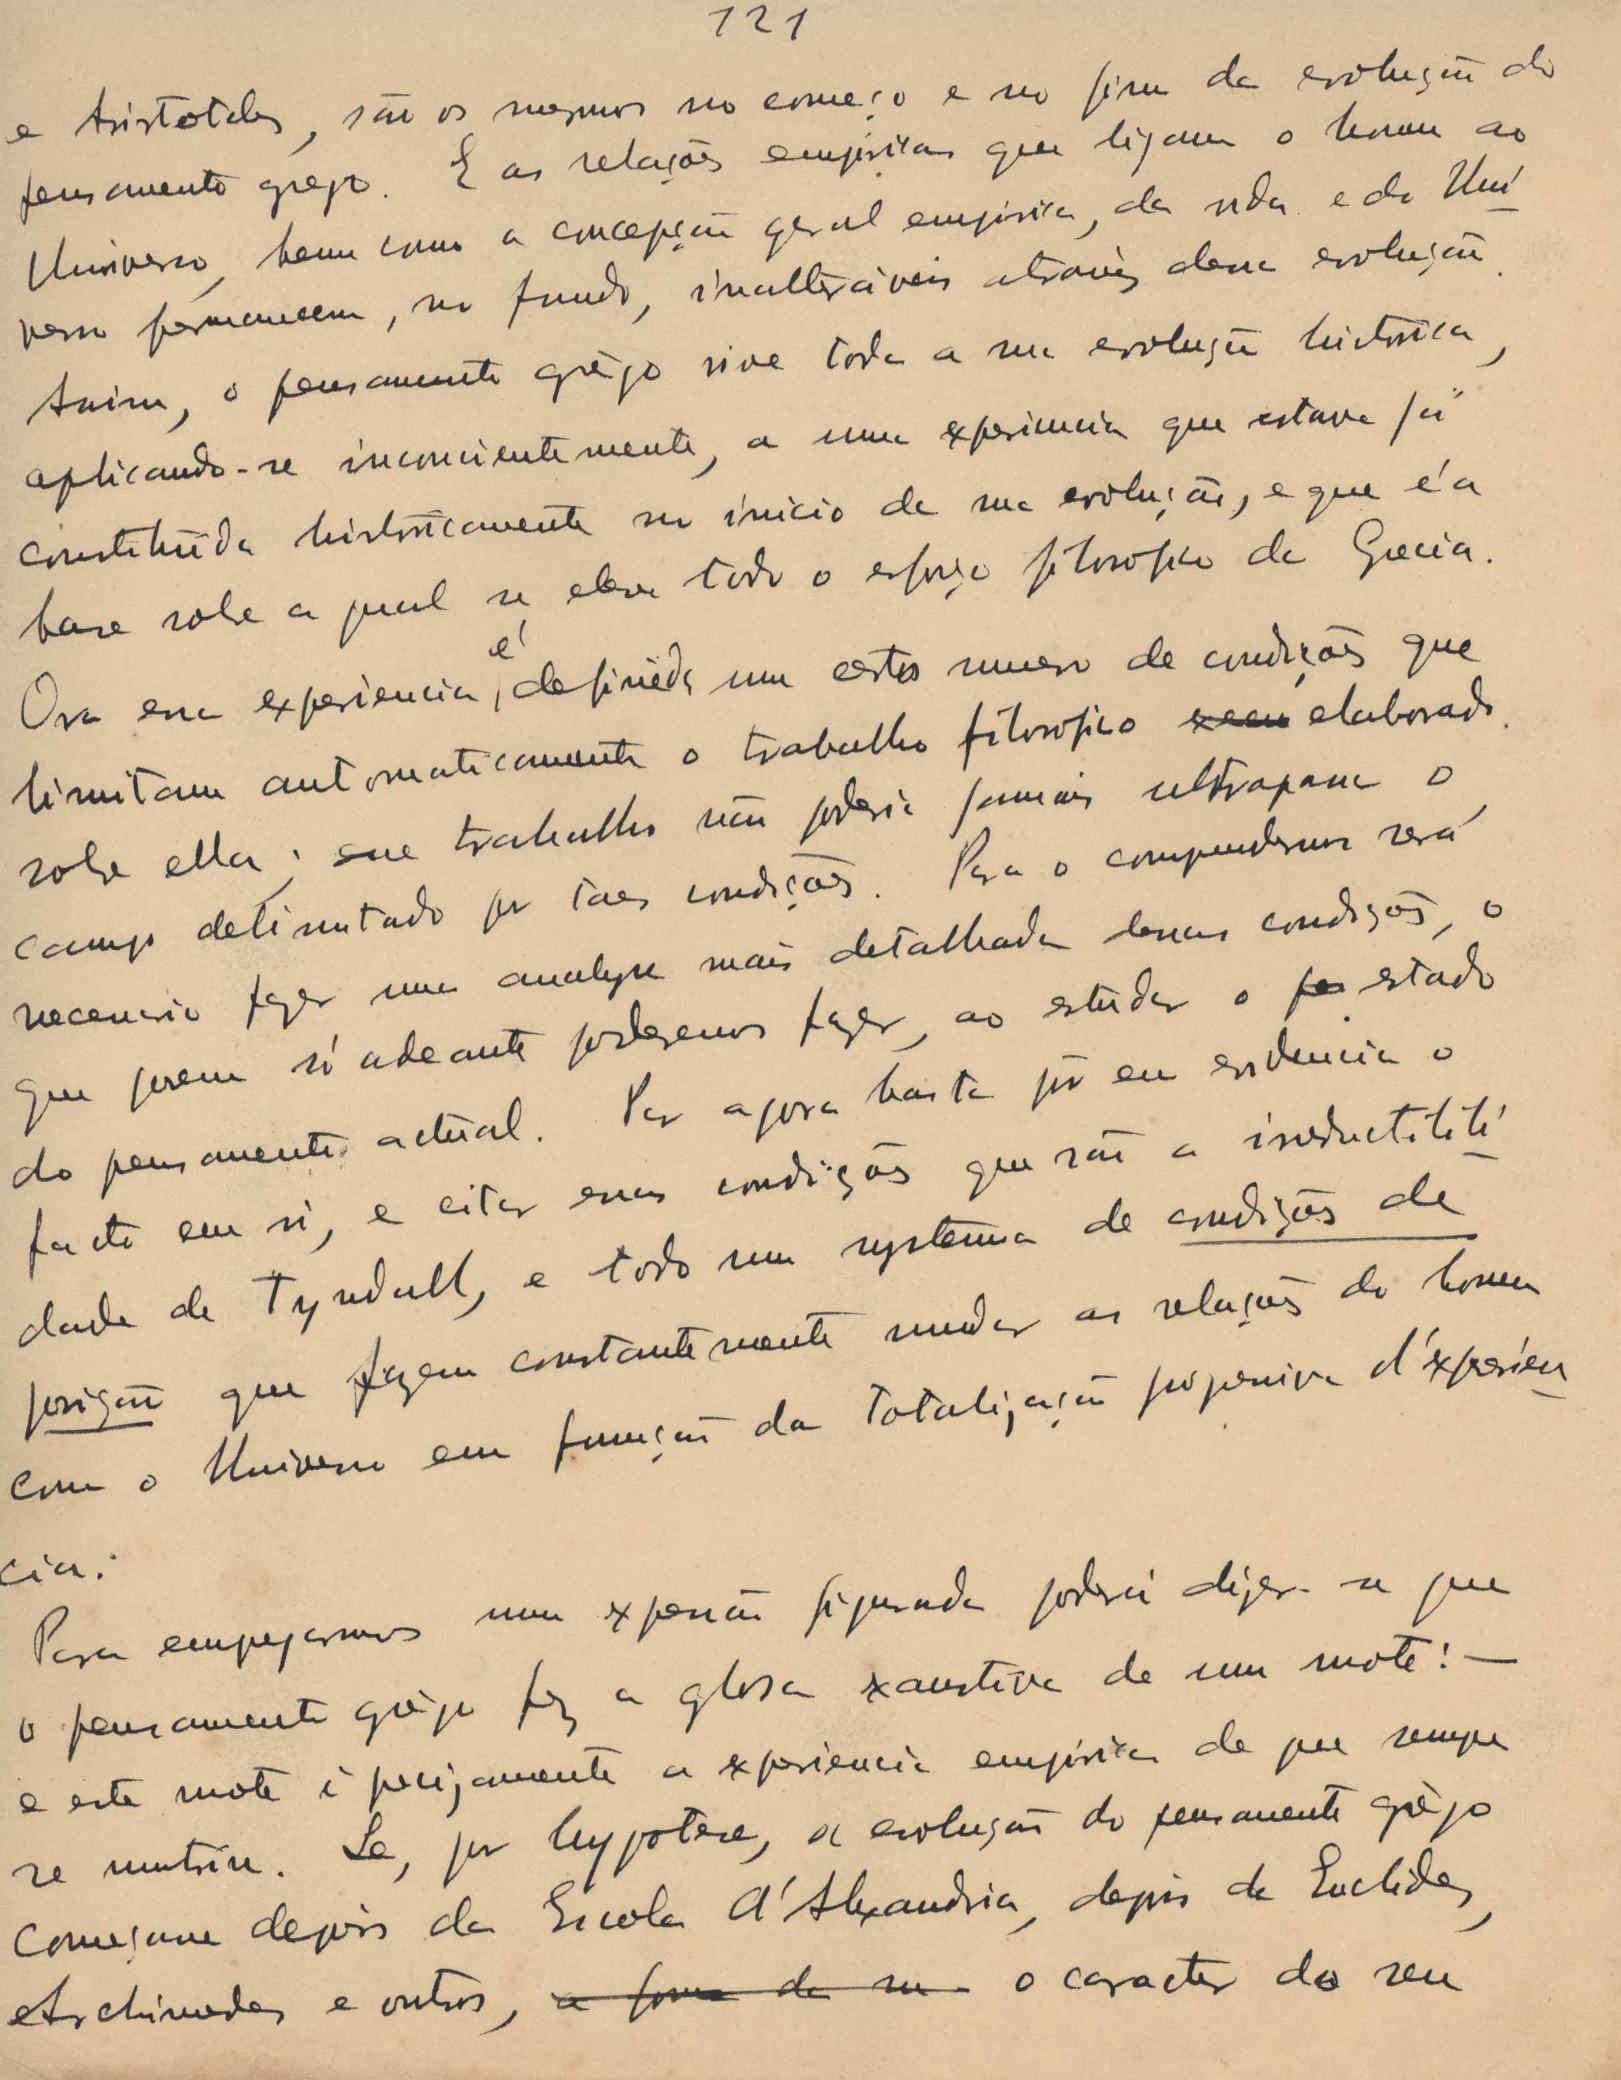 121
e Aristoteles, são os mesmos no começo e no fim da evolução do
pensamento grego. E as relações empiricas que ligam o homem ao
Universo, bem como a concepção geral empirica, da vida e do Uni
verso permanecem, no fundo, inalteráveis através dessa evolução.
Assim, o pensamento grêgo vive toda a sua evolução historica,
aplicando-se inconcientemente, a uma experiencia que estava já
constituída historicamente no início de sua evolução, e que é a
base sobre a qual se eleva todo o esforço filosofico da Grecia.
Ora essa experiencia, é definida um certos numero de condições que
limitam automaticamente o trabalho filosofico elaborado
sobre ella; esse trabalho não poderia jamais ultrapassar o
campo delimitado por taes condições. Para o comprendermos será
necessario fazer uma analyse mais detalhada dessas condições, o
que porem só adeante poderemos fazer, ao estudar o estado
do pensamento actual. Por agora basta pôr em evidencia o
facto em si, e citar essas condições que são a irreductibili
dade de Tyndall, e todo um systema de condições de
posição que fazem constantemente mudar as relações do homem
com o Universo em função da totalização progressiva d'experien
cia.
Para empregarmos uma expressão figurada poderá dizer-se que
o pensamento grêgo fez a glosa exaustiva de um mote: —
e este mote é precizamente a experiencia empirica de que sempre
se nutriu. Se, por hypotese, a evolução do pensamento grêgo
começasse depois da Escola d'Alexandria, depois de Euclides,
Archimedes e outros, a forma de su o caracter do seu